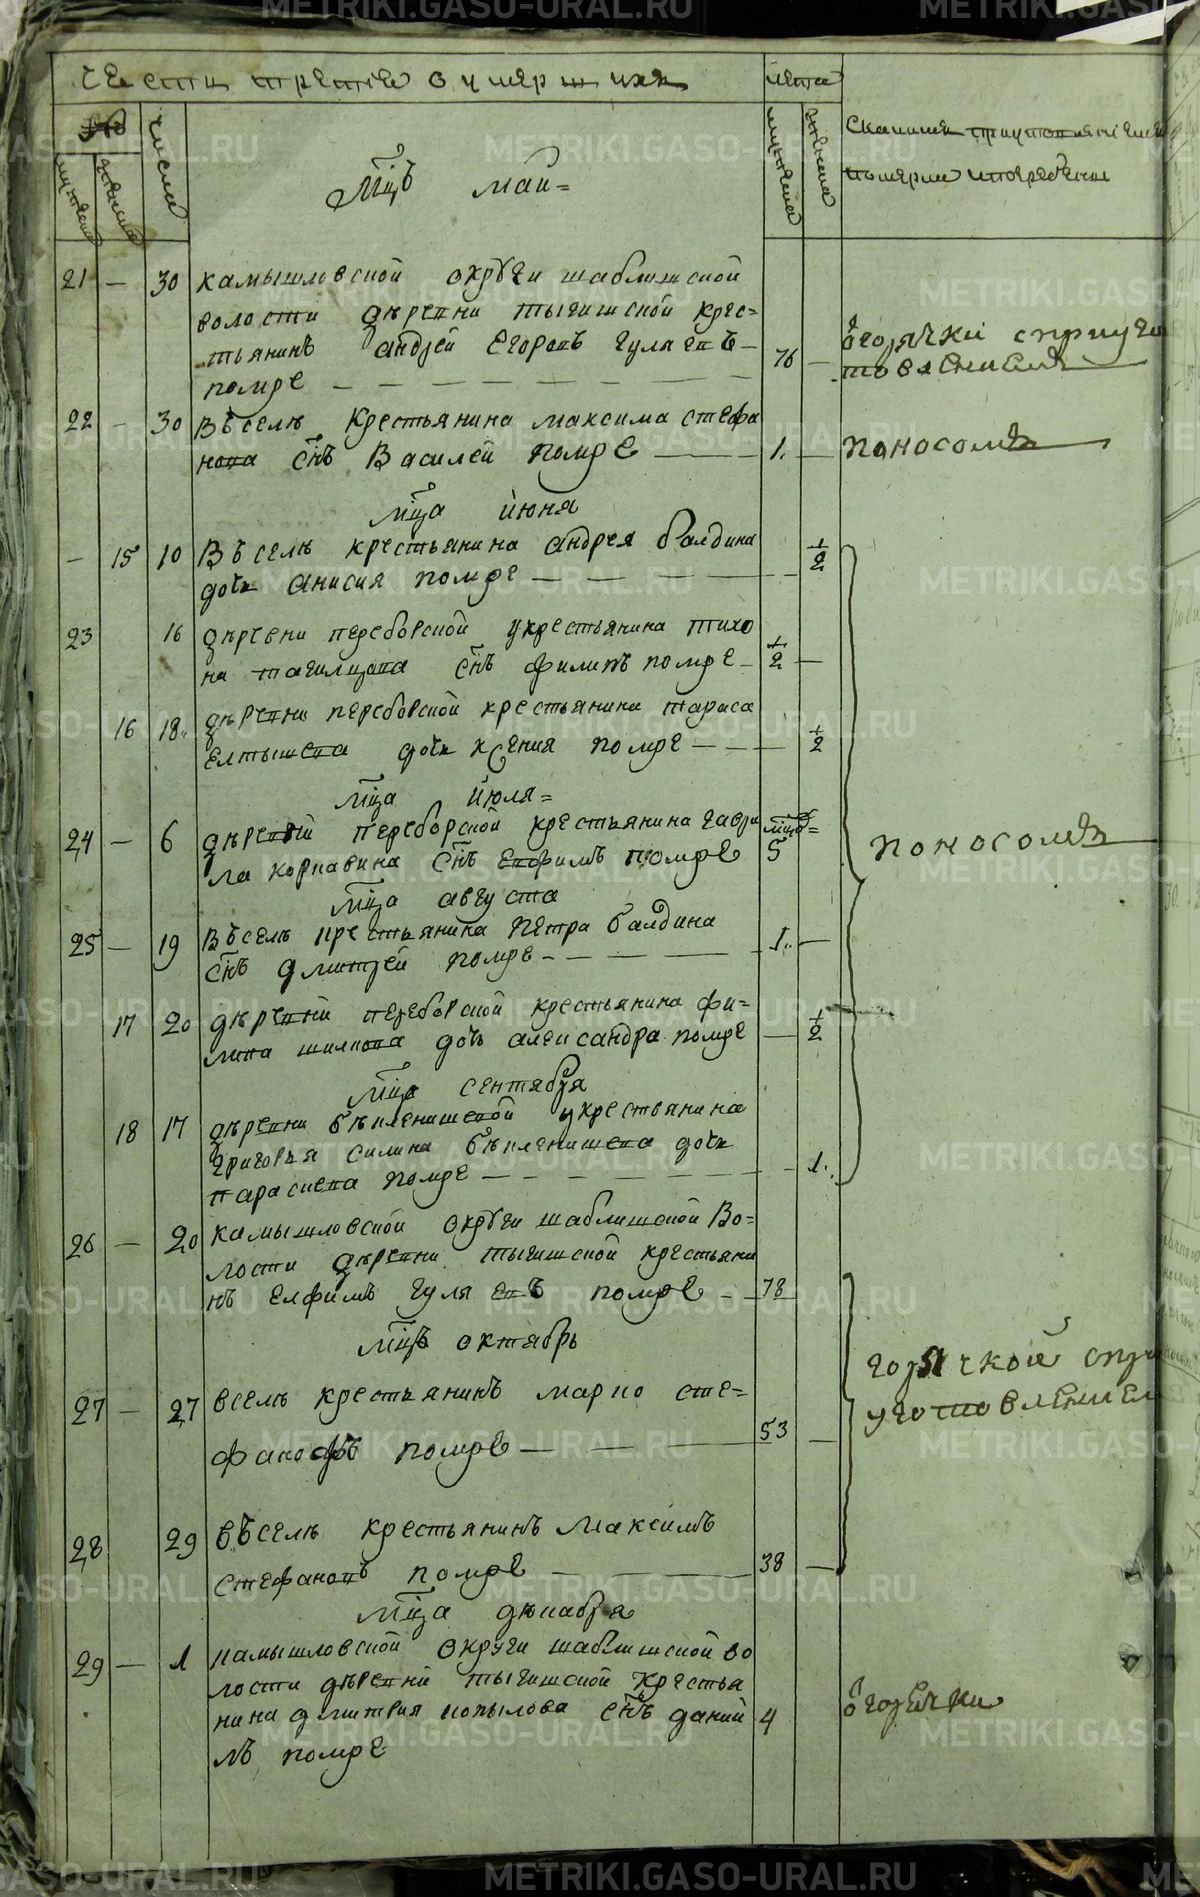 METRIKI.GASO-URAL.RU
части третіе о умершихъ
лета
№
мужеска
женска
числа
мужеска
женска
скаким приуготовленiем
померли и погребены
Мцъ май=
21 — 30 камышловской округи шаблишской
волости деревни тыгишской крес=
тьянинъ андрей Егоровъ гуляевъ —
помре — 76 —
ѿ горячки с приуго
товлениемъ
22 — 30 Въселѣ крестьянина максима стефа
нова снъ Василей помре — 1. —
поносомъ
мца июня
— 15 10 Въселѣ крестьянина андрея балдина
дочь анисия помре — 1/2
23 16 деревни переборской укрестьянина тихо
на тагилцова снъ филипъ помре — 1/2 —
16 18 деревни переборской крестьянина тараса
елтышева дочь ксения помре — 1/2
мца июля=
24 — 6 деревни переборской крестьянина гаври
ла корнавина снъ евфимъ помре
мцъ= 5
поносомъ
мца августа
25 — 19 Въселѣ крестьянина петра балдина
снъ дмитрей помре — 1. —
17 20 деревни переборской крестьянина фи=
липа шилкова дочь александра помре — 1/2
мца сентября
18 17 деревни бѣкленищевой укрестьянина
григорья силина бѣкленищева дочь
парасковa помре — 1.
26 — 20 камышловской округи шаблишской во=
лости деревни тыгишской крестьяни
нъ елфимъ гуляевъ помре — 78
мцъ октябрь
27 — 27 вселѣ крестьянинъ марко сте=
фановъ помре — 53 —
горячкой спри
уготовлением
28 29 въселѣ крестьянинъ максимъ
стефановъ помре — 38 —
мца декабря
29 — 1 камышловской округи шаблишской во
лости деревни тыгишской крестья
нина дмитрия копылова снъ дании
лъ помре 4
ѿ горячки